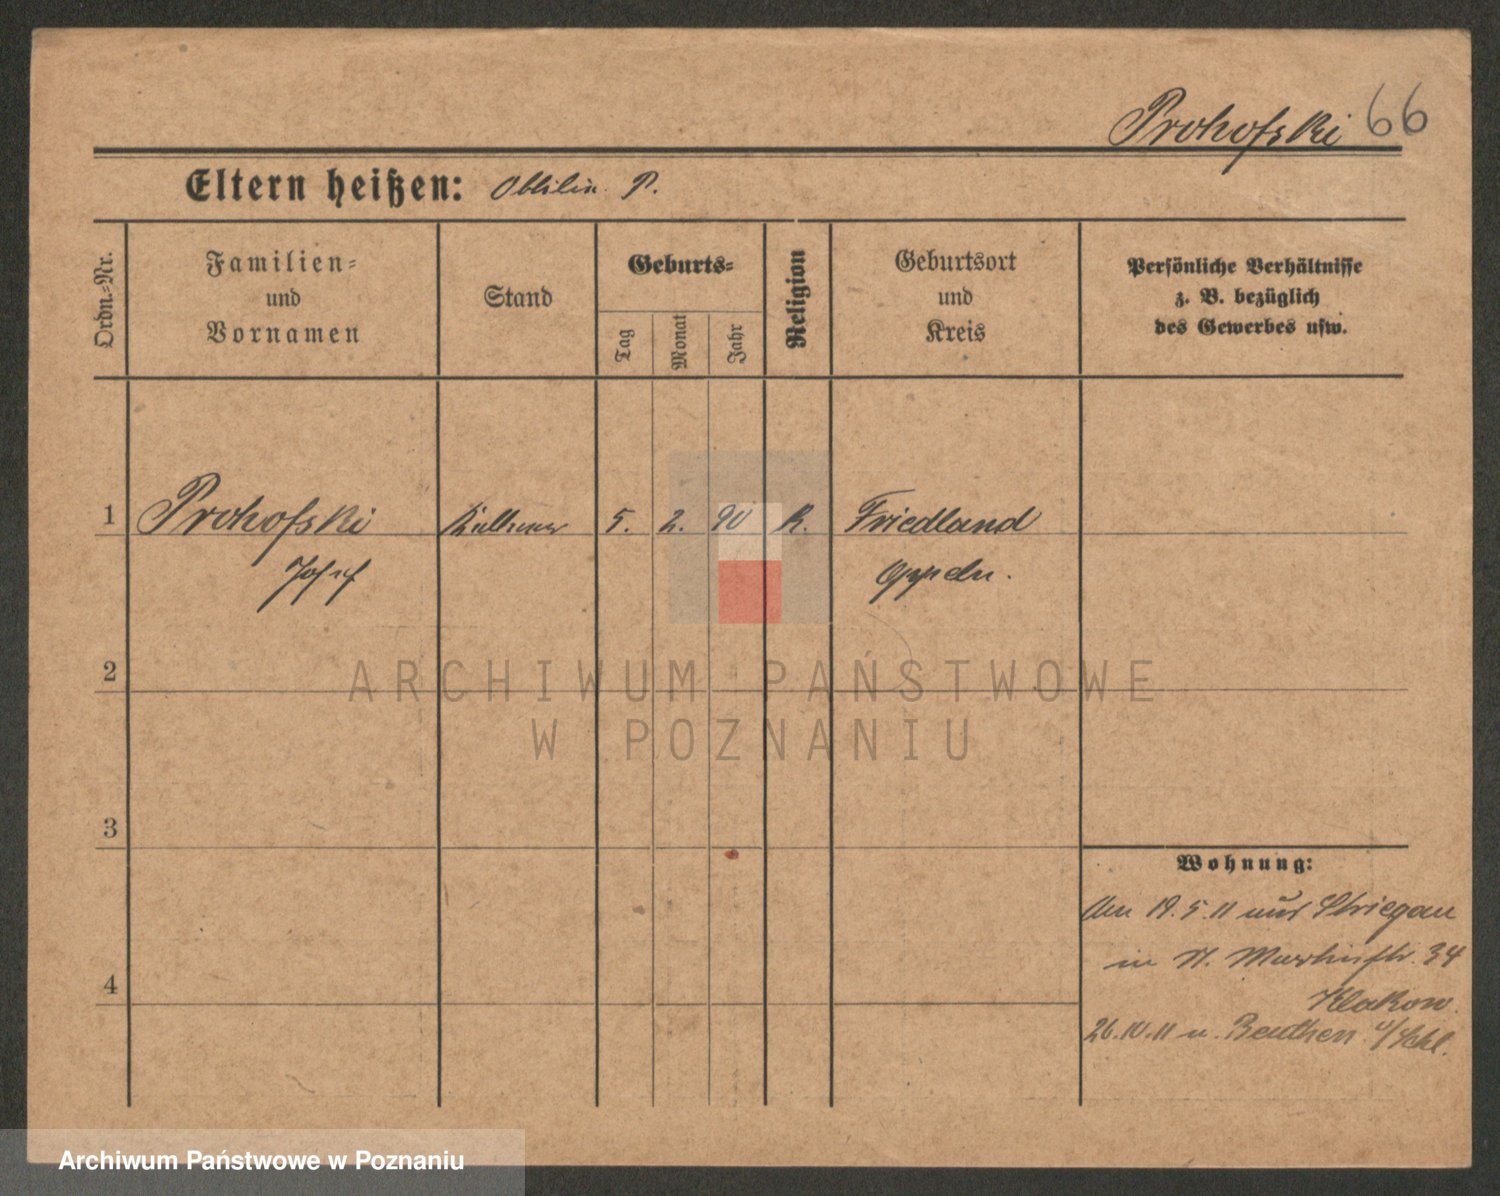 Prohofski 66
Eltern heißen: P.
Ordn.-Nr.
Familien-
und
Vornamen
Stand
Geburts-
Tag
Monat
Jahr
Religion
Geburtsort
und
Kreis
Persönliche Verhältnisse
z. B. bezüglich
des Gewerbes usw.
1 Prohofski 5. 2. 90 K. Friedland
Josef Oppeln.
2
ARCHIWUM PAŃSTWOWE
W POZNANIU
3
Wohnung:
19. 5. 11 aus Striegau
in 34
26. 10. 11 n. Beuthen
4
Archiwum Państwowe w Poznaniu